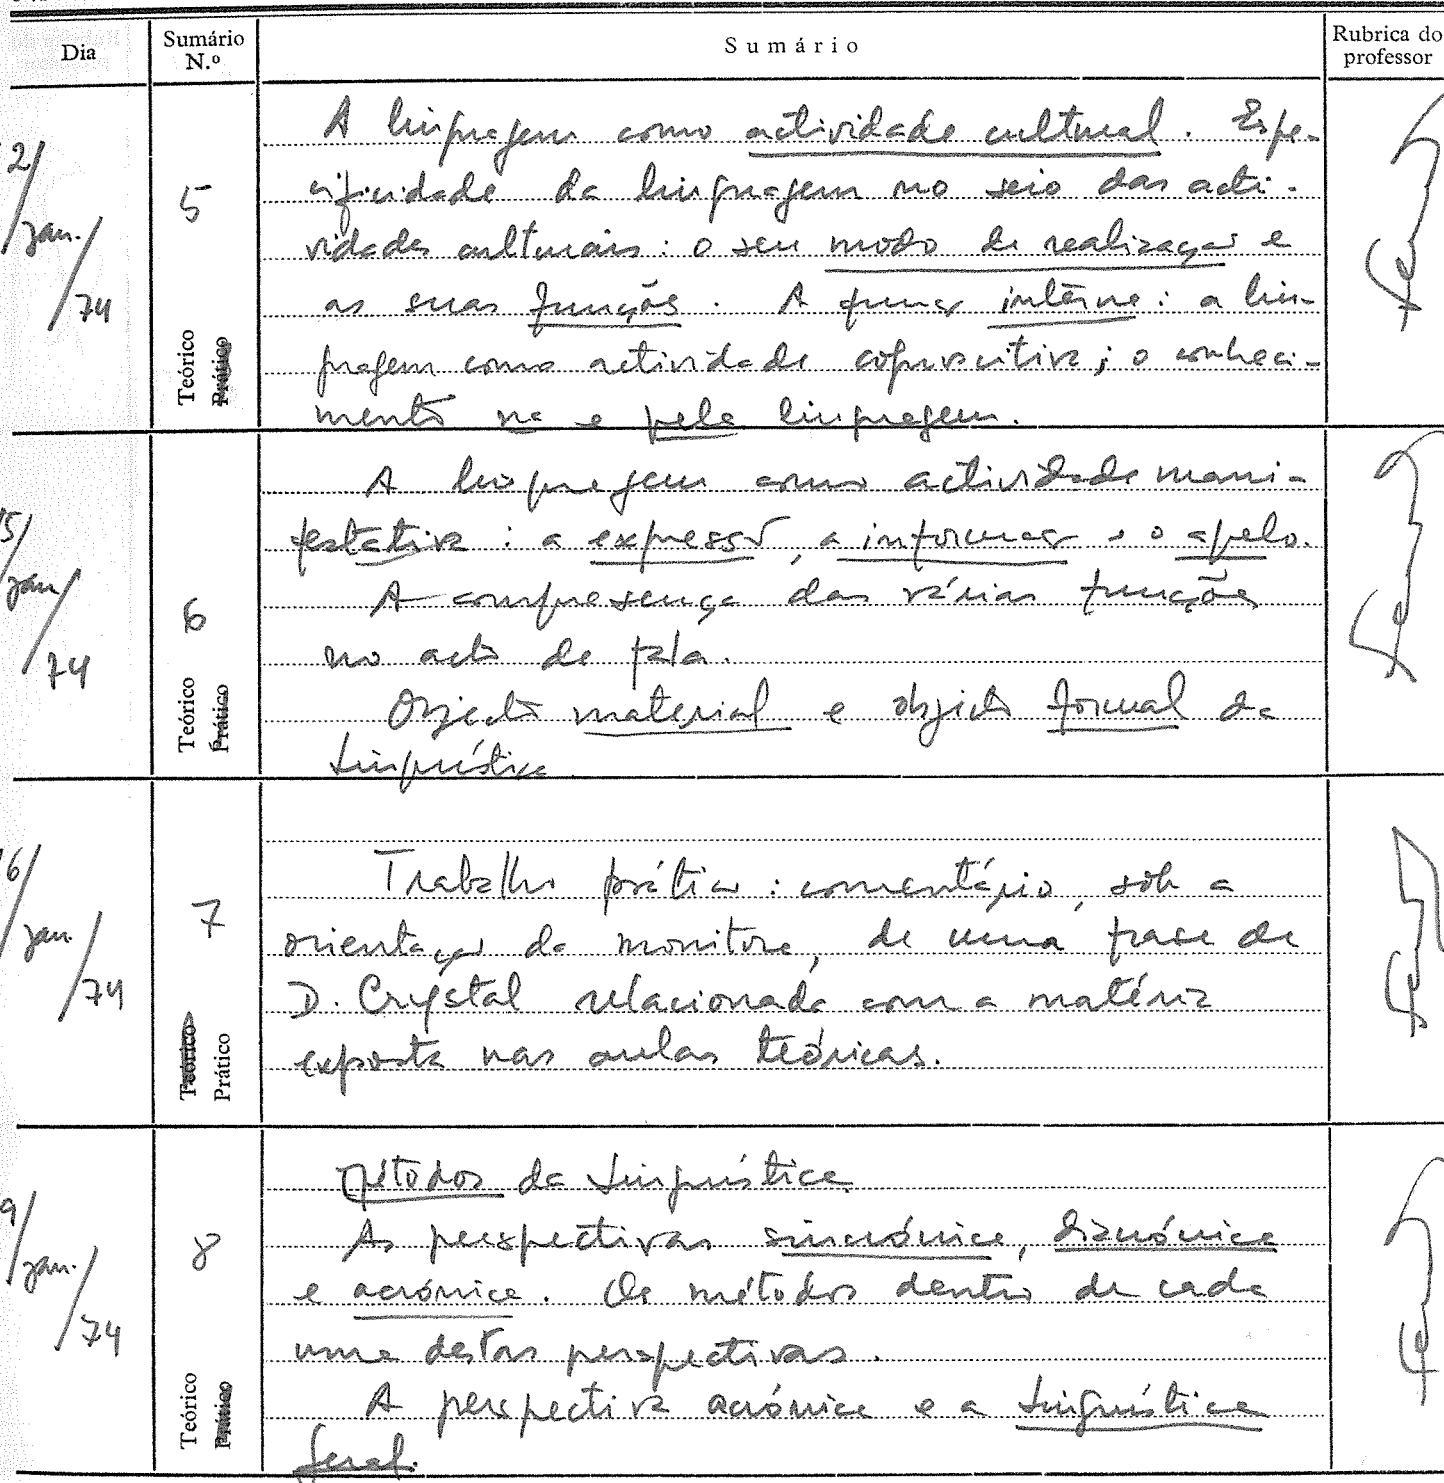 Dia
Sumário N.º
Sumário
Rubrica do professor
2/jan./74
5
Teórico
Prático
A linguagem como actividade cultural. Espe-
cificidade da linguagem no seio das acti-
vidades culturais: o seu modo de realização e
as suas funções. A função interna: a lin-
guagem como actividade cognoscitiva; o conheci-
mento na e pela linguagem.
5/jan/74
6
Teórico
Prático
A linguagem como actividade mani-
festativa: a expressão, a informação e o apelo.
A compresença das várias funções
no acto de fala.
Objecto material e objecto formal da
Linguística
6/jan./74
7
Teórico
Prático
Trabalho prático: comentário, sob a
orientação da monitora, de uma frase de
D. Crystal relacionada com a matéria
exposta nas aulas teóricas.
9/jan./74
8
Teórico
Prático
Métodos da Linguística
As perspectivas sincrónica, diacrónica
e acrónica. Os métodos dentro de cada
uma destas perspectivas.
A perspectiva acrónica e a Linguística
Geral.